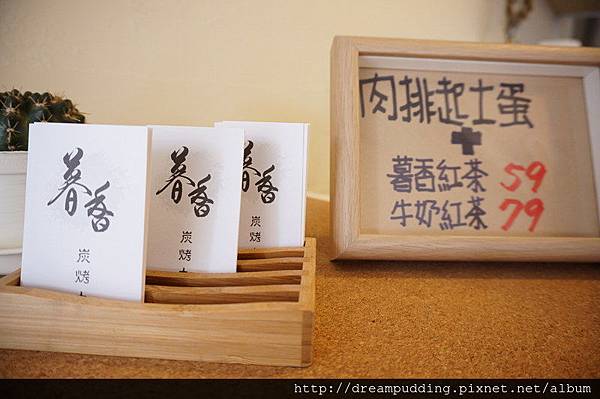 暮香
炭烤
暮香
炭烤
暮香
炭烤
肉排起士蛋
+
薯香紅茶 59
牛奶紅茶 79
http://dreampudding.pixnet.net/album